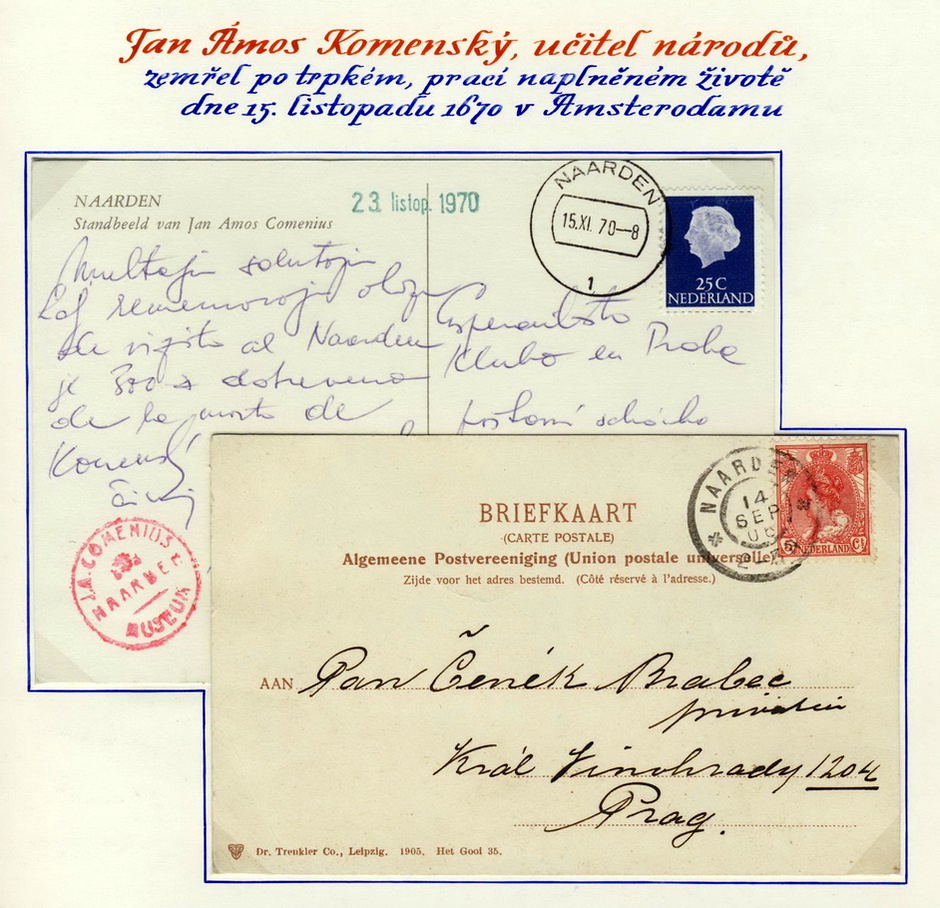 Jan Ámos Komenský, učitel národů,
zemřel po trpkém, prací naplněném životě
dne 15. listopadu 1670 v Amsterodamu
NAARDEN
Standbeeld van Jan Amos Comenius
23. listop. 1970
NAARDEN
15.XI.70–8
1
25C
NEDERLAND
Multajn salutojn
kaj rememorojn okaze
de vizito al Naarden
je 300a datreveno
de la morto de
Komenský
Esperantisto
Klubo en Praha
poštovní schránka
J.A. COMENIUS
NAARDEN
MUSEUM
BRIEFKAART
(CARTE POSTALE)
Algemeene Postvereeniging (Union postale universelle)
Zijde voor het adres bestemd. (Côté réservé à l'adresse.)
NAARDEN
14
SEP
06
5 Ct
NEDERLAND
AAN Pan Čeněk Brabec
Král Vinohrady 1204
Prag.
Dr. Trenkler Co., Leipzig. 1905. Het Gooi 35.